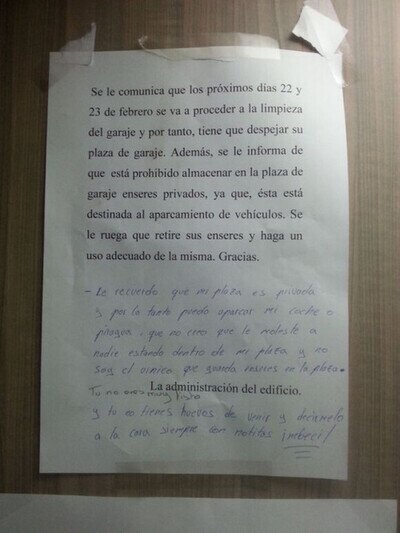 Se le comunica que los próximos días 22 y
23 de febrero se va a proceder a la limpieza
del garaje y por tanto, tiene que despejar su
plaza de garaje. Además, se le informa de
que está prohibido almacenar en la plaza de
garaje enseres privados, ya que, ésta está
destinada al aparcamiento de vehículos. Se
le ruega que retire sus enseres y haga un
uso adecuado de la misma. Gracias.
- Le recuerdo que mi plaza es privada
y por lo tanto puedo aparcar mi coche o
piragua, que no creo que le moleste a
nadie estando dentro de mi plaza y no
soy el unico que guarda enseres en la plaza.
La administración del edificio.
Tu no eres muy listo
y tu no tienes huevos de venir y decirmelo
a la cara siempre con notitas ¡imbecil!